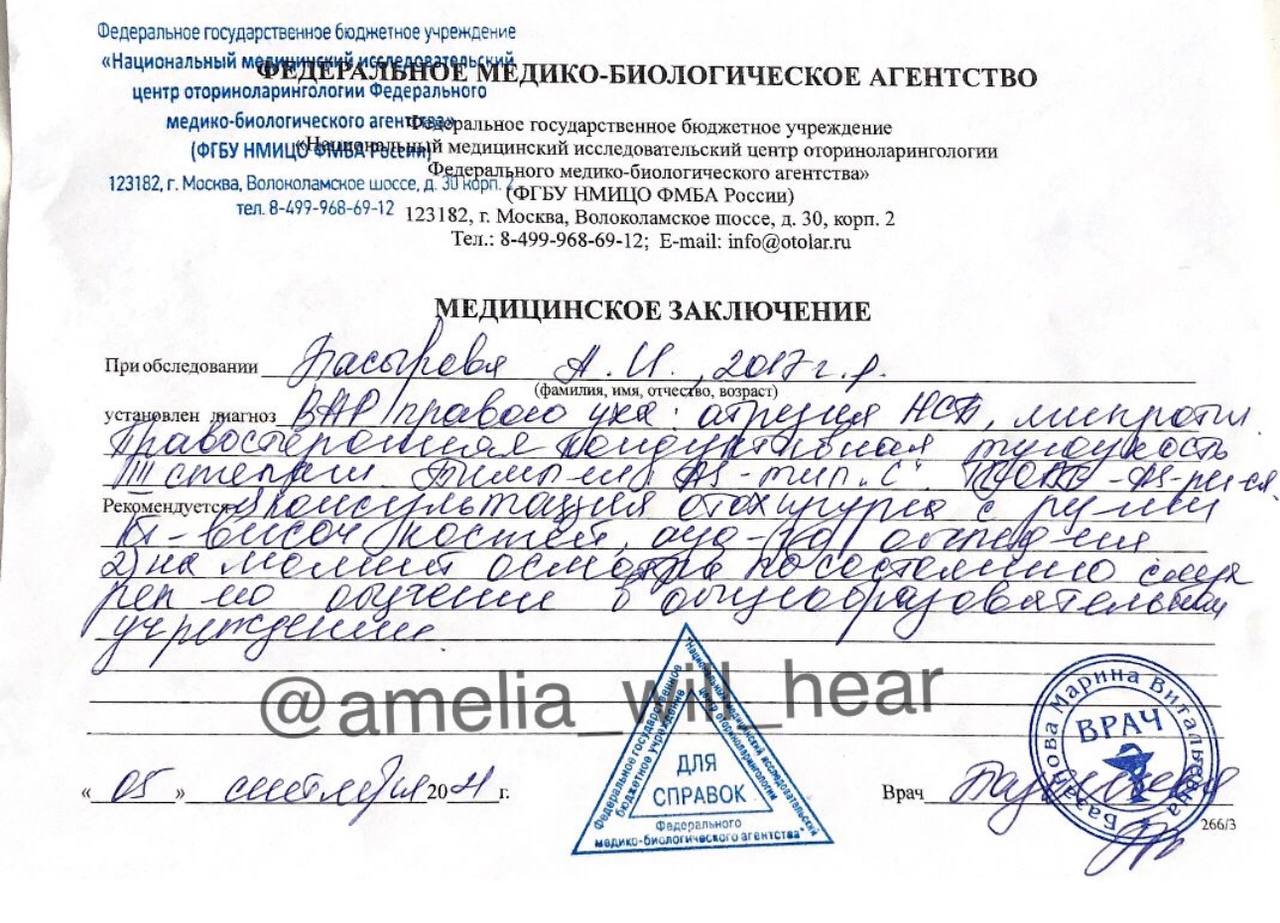 Федеральное государственное бюджетное учреждение
«Национальный медицинский исследовательский
центр оториноларингологии Федерального
медико-биологического агентства»
(ФГБУ НМИЦО ФМБА России)
123182, г. Москва, Волоколамское шоссе, д. 30 корп. 2
тел. 8-499-968-69-12
ФЕДЕРАЛЬНОЕ МЕДИКО-БИОЛОГИЧЕСКОЕ АГЕНТСТВО
Федеральное государственное бюджетное учреждение
«Национальный медицинский исследовательский центр оториноларингологии
Федерального медико-биологического агентства»
(ФГБУ НМИЦО ФМБА России)
123182, г. Москва, Волоколамское шоссе, д. 30, корп. 2
Тел.: 8-499-968-69-12; E-mail: info@otolar.ru
МЕДИЦИНСКОЕ ЗАКЛЮЧЕНИЕ
При обследовании А. И., 2017 г.р.
(фамилия, имя, отчество, возраст)
установлен диагноз ВАР правого уха: атрезия НСП, микроти
Правосторонняя кондуктивная тугоухость
III степени AS-тип "С".
Рекомендуется 1) консультация отохирурга с
КТ-височ костей,
2) на момент осмотра по состоянию слуха
обучение в общеобразовательном
учреждении
@amelia_will_hear
Национальный медицинский исследовательский центр оториноларингологии
Федеральное государственное бюджетное учреждение
ДЛЯ
СПРАВОК
Федерального
медико-биологического агентства"
« 05 » сентября 2021 г.
Врач
Марина Витальевна
ВРАЧ
266/3